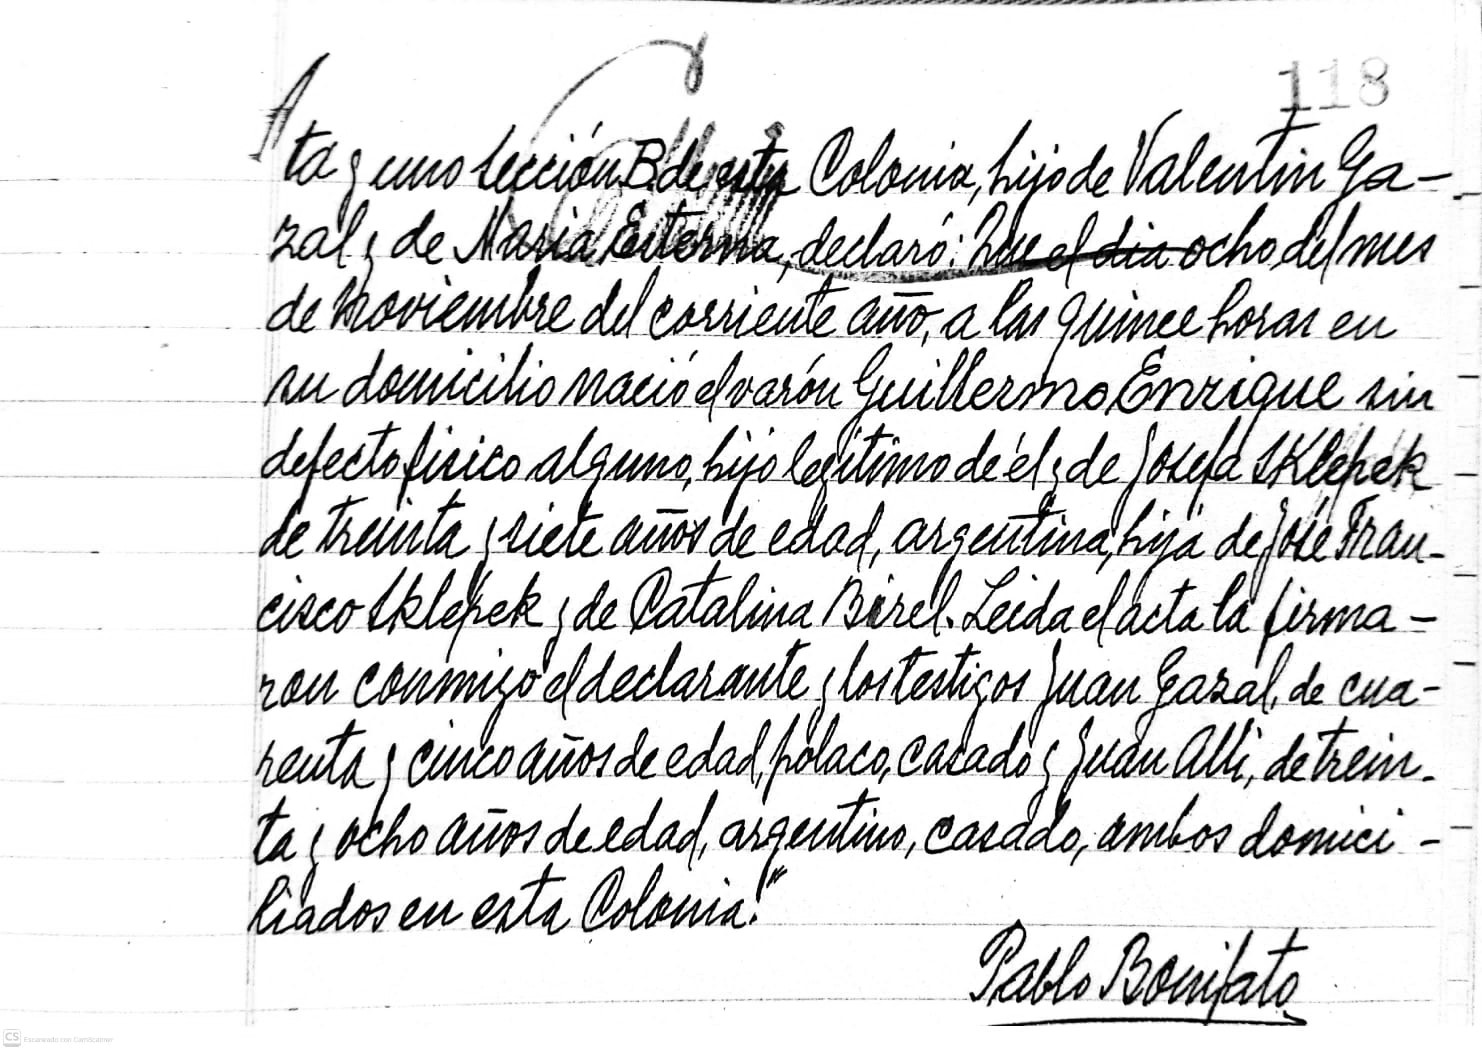 118
ta y uno sección B. de esta Colonia, hijo de Valentin Ga-
zal y de Maria Esterna, declaró: Que el dia ocho del mes
de noviembre del corriente año, a las quince horas en
su domicilio nació el varón Guillermo Enrique sin
defecto fisico alguno, hijo legítimo de él y de Josefa Sklepek
de treinta y siete años de edad, argentina, hija de José Fran-
cisco Sklepek y de Catalina Birel. Leida el acta la firma-
ron conmigo el declarante y los testigos Juan Gazal, de cua-
renta y cinco años de edad, polaco, casado y Juan Alli, de trein-
ta y ocho años de edad, argentino, casado, ambos domici-
liados en esta Colonia."
Pablo Bonifato
CS Escaneado con CamScanner